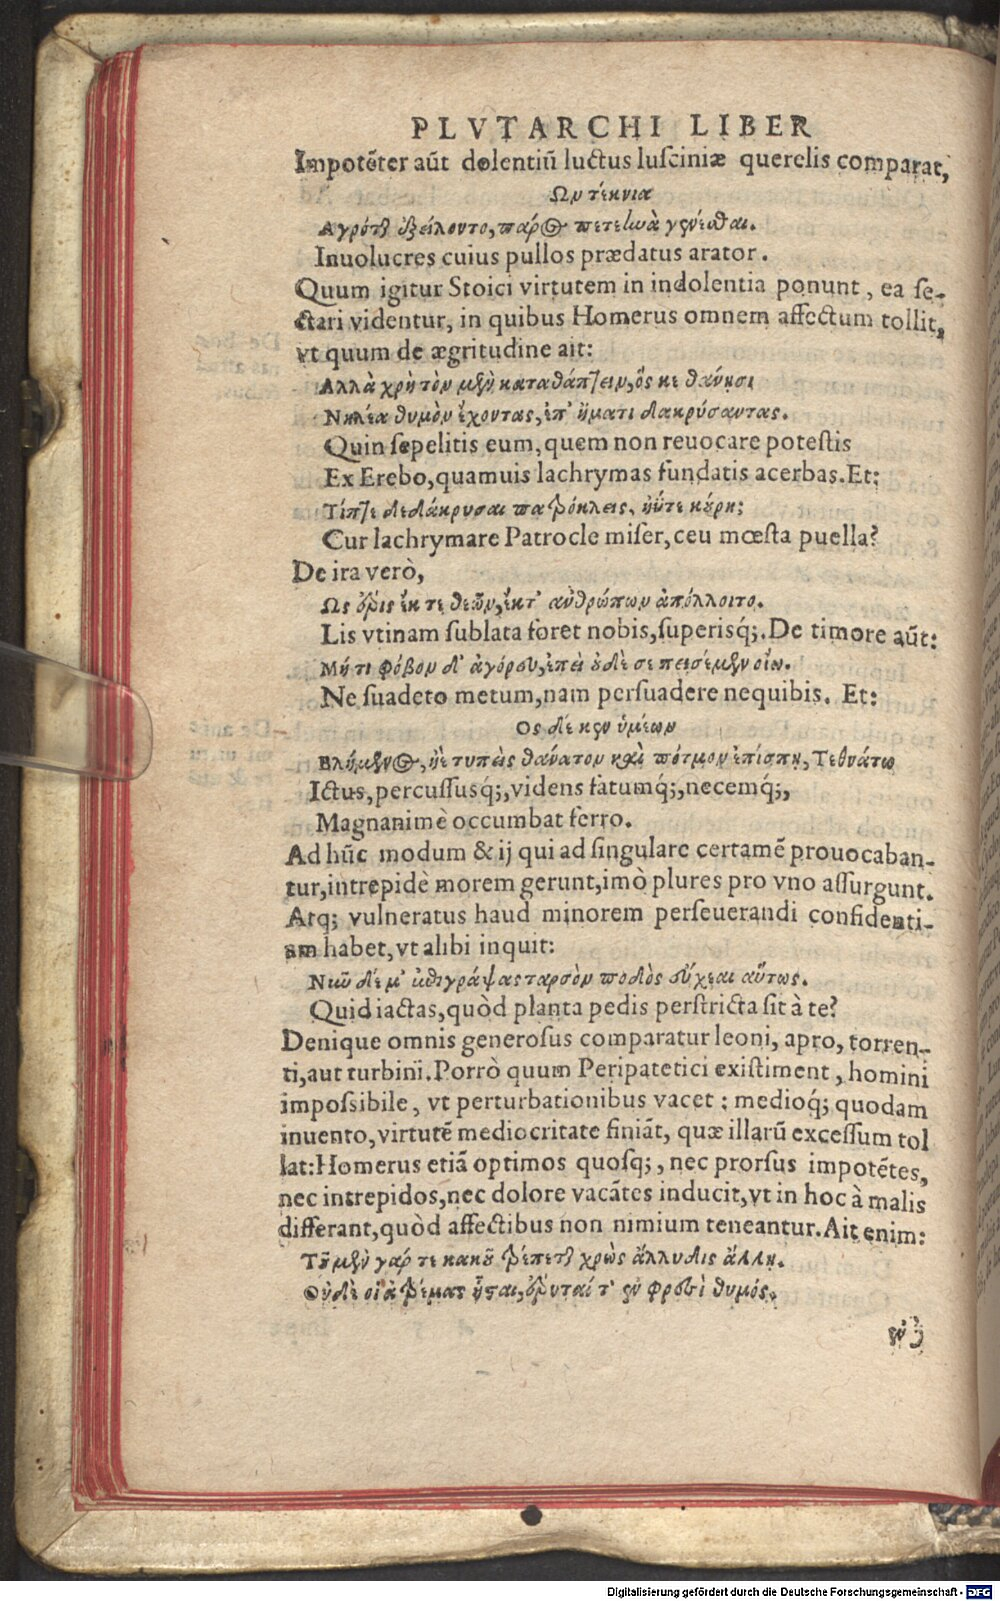 PLVTARCHI LIBER
Impotẽter aũt dolentiũ luctus lusciniæ querelis comparat,
Ων τέκνια
Αγρότῃ ἐξείλοντο, πάρος πετεηνὰ γενέσθαι.
Inuolucres cuius pullos prædatus arator.
Quum igitur Stoici virtutem in indolentia ponunt, ea se-
ctari videntur, in quibus Homerus omnem affectum tollit,
vt quum de ægritudine ait:
Αλλὰ χρὴ τὸν μὲν καταθάπτειν, ὅς κε θάνησι
Νηλέα θυμὸν ἔχοντας, ἐπ' ἤματι δακρύσαντας.
Quin sepelitis eum, quem non reuocare potestis
Ex Erebo, quamuis lachrymas fundatis acerbas. Et:
Τίπτε δεδάκρυσαι πατρόκλεις, ἠΰτε κούρη;
Cur lachrymare Patrocle miser, ceu mœsta puella?
De ira verò,
Ως ἔρις ἔκ τε θεῶν, ἔκτ' ἀνθρώπων ἀπόλλοιτο.
Lis vtinam sublata foret nobis, superisq́;. De timore aũt:
Μή τι φόβον δ' ἀγόρευ, ἐπεὶ οὐδὲ σε πεισέμεν οἴω.
Ne suadeto metum, nam persuadere nequibis. Et:
Ος δέ κεν ὑμέων
Βλήμενος, ἠὲ τυπεὶς θάνατον καὶ πότμον ἐπίσπῃ, Τεθνάτω
Ictus, percussusq́;, videns fatumq́;, necemq́;,
Magnanimè occumbat ferro.
Ad hũc modum & ij qui ad singulare certamẽ prouocaban-
tur, intrepidè morem gerunt, imò plures pro vno assurgunt.
Atq; vulneratus haud minorem perseuerandi confidenti-
am habet, vt alibi inquit:
Νῦν δέ μ' ἐπιγράψας ταρσὸν ποδὸς εὔχεαι αὔτως.
Quid iactas, quòd planta pedis perstricta sit à te?
Denique omnis generosus comparatur leoni, apro, torren-
ti, aut turbini. Porrò quum Peripatetici existiment, homini
impossibile, vt perturbationibus vacet: medioq́; quodam
inuento, virtutẽ mediocritate finiãt, quæ illarũ excessum tol
lat: Homerus etiã optimos quosq;, nec prorsus impotẽtes,
nec intrepidos, nec dolore vacãtes inducit, vt in hoc à malis
differant, quòd affectibus non nimium teneantur. Ait enim:
Τοῦ μὲν γάρ τε κακοῦ τρέπεται χρὼς ἄλλυδις ἄλλη.
Οὐδὲ οἱ ἀτρέμας ἧσται, ἐρητύεται τ' ἐν φρεσὶ θυμός.
Digitalisierung gefördert durch die Deutsche Forschungsgemeinschaft - DFG